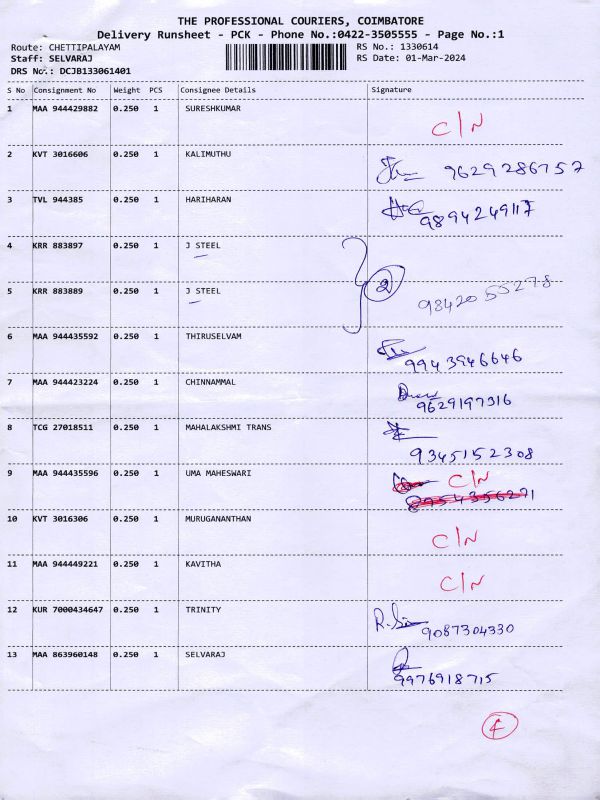 THE PROFESSIONAL COURIERS, COIMBATORE
Delivery Runsheet - PCK - Phone No.:0422-3505555 - Page No.:1
Route: CHETTIPALAYAM RS No.: 1330614
Staff: SELVARAJ RS Date: 01-Mar-2024
DRS No.: DCJB133061401
S No Consignment No Weight PCS Consignee Details Signature
1 MAA 944429882 0.250 1 SURESHKUMAR C/N
2 KVT 3016606 0.250 1 KALIMUTHU 9629286757
3 TVL 944385 0.250 1 HARIHARAN 9894249117
4 KRR 883897 0.250 1 J STEEL
2
5 KRR 883889 0.250 1 J STEEL 9842055278
6 MAA 944435592 0.250 1 THIRUSELVAM 9943946646
7 MAA 944423224 0.250 1 CHINNAMMAL 9629197316
8 TCG 27018511 0.250 1 MAHALAKSHMI TRANS 9345152308
9 MAA 944435596 0.250 1 UMA MAHESWARI C/N
10 KVT 3016306 0.250 1 MURUGANANTHAN C/N
11 MAA 944449221 0.250 1 KAVITHA C/N
12 KUR 7000434647 0.250 1 TRINITY 9087304330
13 MAA 863960148 0.250 1 SELVARAJ 9976918715